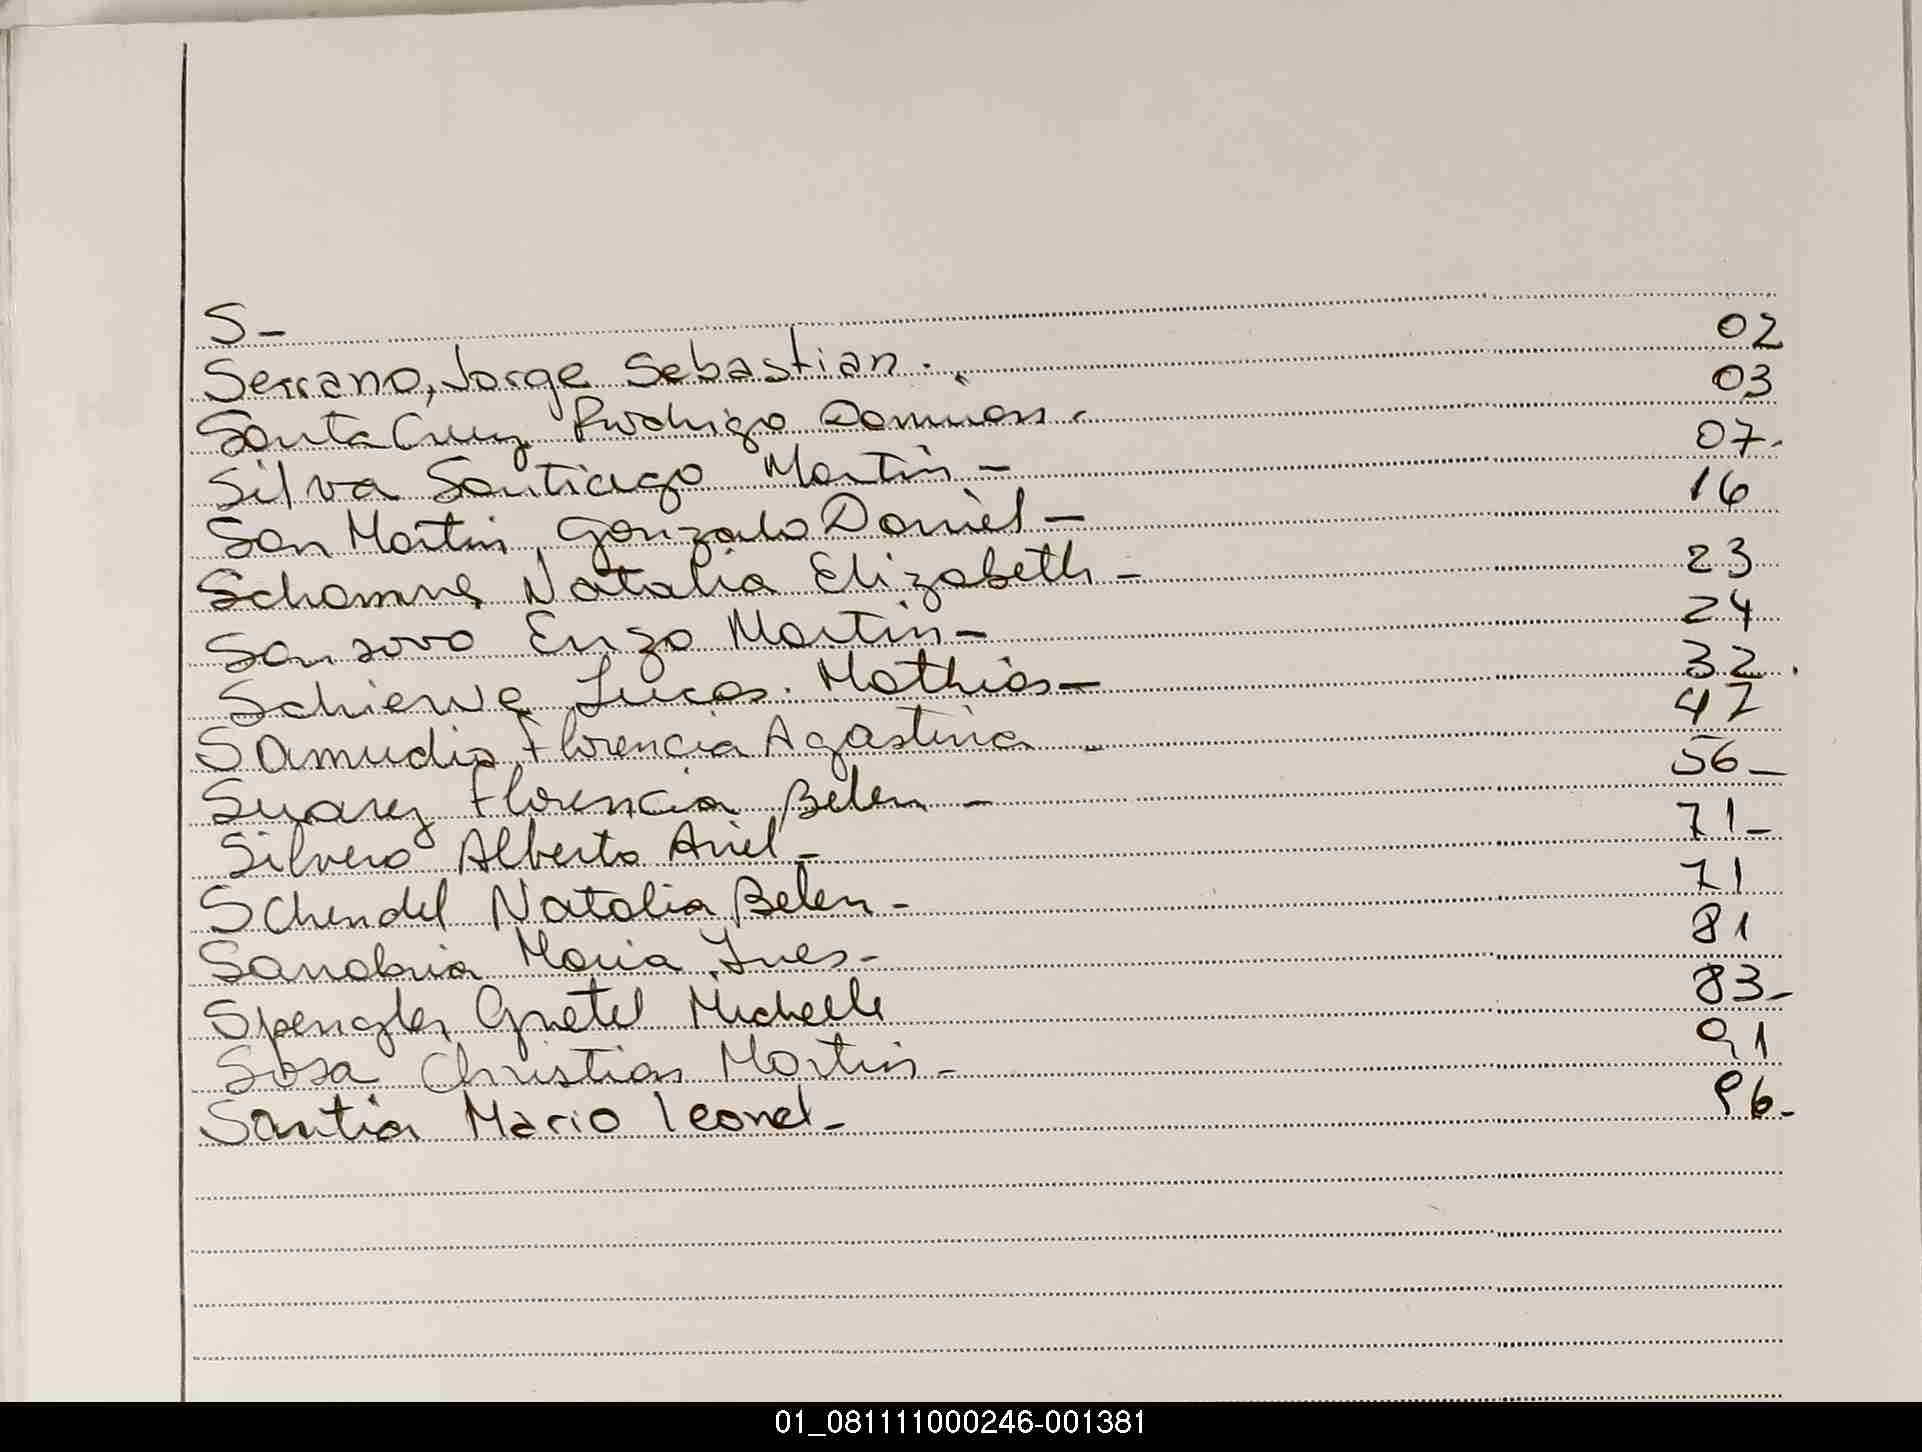 S-
Serrano, Jorge Sebastian. 02
Santa Cruz Rodrigo Damian. 03
Silva Santiago Martin - 07.
San Martin, Gonzalo Daniel - 16
Natalia Elizabeth - 23
Enzo Martin - 24
Lucas. Mathias - 32.
Samudio, Florencia Agastina - 47
Suarez Florencia Belen - 56-
Silvero Alberto Ariel - 71-
Schendel Natalia Belen - 71
Sanabria Maria Ines - 81
Spengler Gretel Michelle 83-
Sosa Christian Martin - 91
Santia Mario Leonel - 96-
01_081111000246-001381